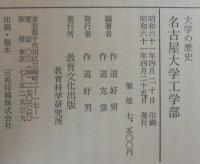 大学の歴史
名古屋大学工学部
昭和六十一年四月二十日　印刷
昭和六十一年四月二十五日　発行
価　七、五〇〇円
編著者　作道好男
作道克彦
発行者　作道好男
発行所　教育文化出版
教育科学研究所
東京都千代田区三崎町二ー七ー一七
電話　東京
印刷・製本　三晃印刷株式会社